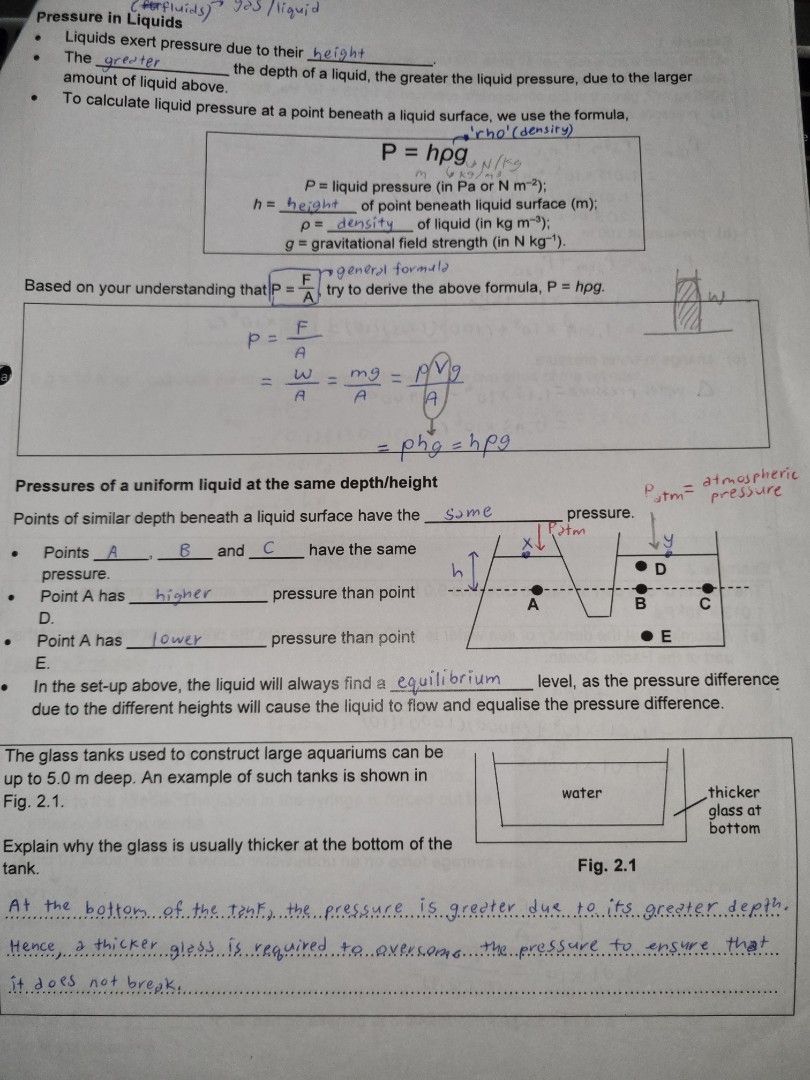 (for fluids) → gas/liquid
Pressure in Liquids
• Liquids exert pressure due to their height.
• The greater the depth of a liquid, the greater the liquid pressure, due to the larger
amount of liquid above.
• To calculate liquid pressure at a point beneath a liquid surface, we use the formula,
'rho' (density)
P = hρg
N/kg
m kg/m³
P = liquid pressure (in Pa or N m⁻²);
h = height of point beneath liquid surface (m);
ρ = density of liquid (in kg m⁻³);
g = gravitational field strength (in N kg⁻¹).
general formula
Based on your understanding that P = F/A, try to derive the above formula, P = hρg.
W
P = F/A
= W/A = mg/A = ρVg/A
= ρhg = hρg
Pressures of a uniform liquid at the same depth/height
Patm = atmospheric pressure
Points of similar depth beneath a liquid surface have the same pressure.
Patm
x y
• Points A, B and C have the same
pressure.
h
D
• Point A has higher pressure than point
D.
A B C
• Point A has lower pressure than point
E.
E
• In the set-up above, the liquid will always find a equilibrium level, as the pressure difference
due to the different heights will cause the liquid to flow and equalise the pressure difference.
The glass tanks used to construct large aquariums can be
up to 5.0 m deep. An example of such tanks is shown in
Fig. 2.1.
water
thicker
glass at
bottom
Explain why the glass is usually thicker at the bottom of the
tank.
Fig. 2.1
At the bottom of the tank, the pressure is greater due to its greater depth.
Hence, a thicker glass is required to overcome the pressure to ensure that
it does not break.